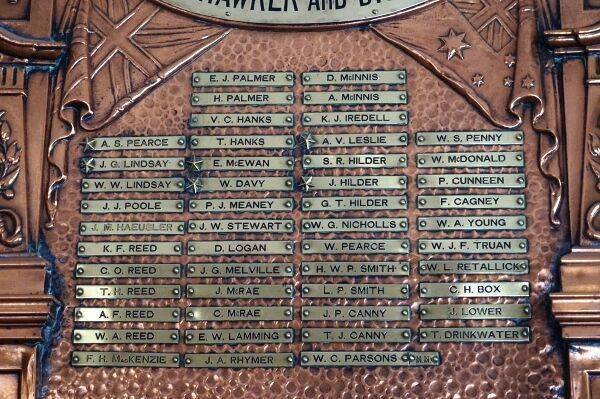 AWKER AND D
E. J. PALMER D. McINNIS
H. PALMER A. McINNIS
V. C. HANKS K. J. IREDELL
A. S. PEARCE T. HANKS A. V. LESLIE W. S. PENNY
J. G. LINDSAY E. McEWAN S. R. HILDER W. McDONALD
W. W. LINDSAY W. DAVY J. HILDER P. CUNNEEN
J. J. POOLE P. J. MEANEY G. T. HILDER F. CAGNEY
J. M. HAEUSLER J. W. STEWART W. G. NICHOLLS W. A. YOUNG
K. F. REED D. LOGAN W. PEARCE W. J. F. TRUAN
C. O. REED J. G. MELVILLE H. W. P. SMITH W. L. RETALLICK
T. H. REED J. McRAE L. P. SMITH C. H. BOX
A. F. REED C. McRAE J. P. CANNY J. LOWER
W. A. REED E. W. LAMMING T. J. CANNY T. DRINKWATER
F. H. MacKENZIE J. A. RHYMER W. C. PARSONS M.M.